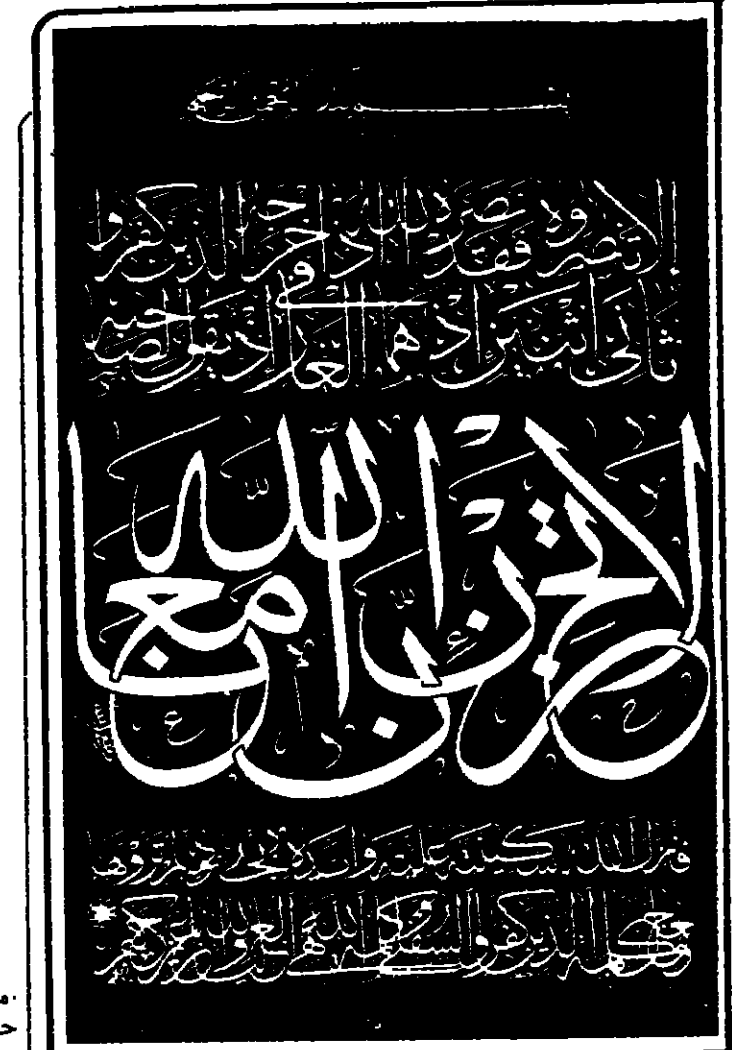 بسم الله الرحمن الرحيم
إلا تنصروه فقد نصره الله إذ أخرجه الذين كفروا
ثاني اثنين إذ هما في الغار إذ يقول لصاحبه
لا تحزن إن الله معنا
فأنزل الله سكينته عليه وأيده بجنود لم تروها
وجعل كلمة الذين كفروا السفلى وكلمة الله هي العليا والله عزيز حكيم